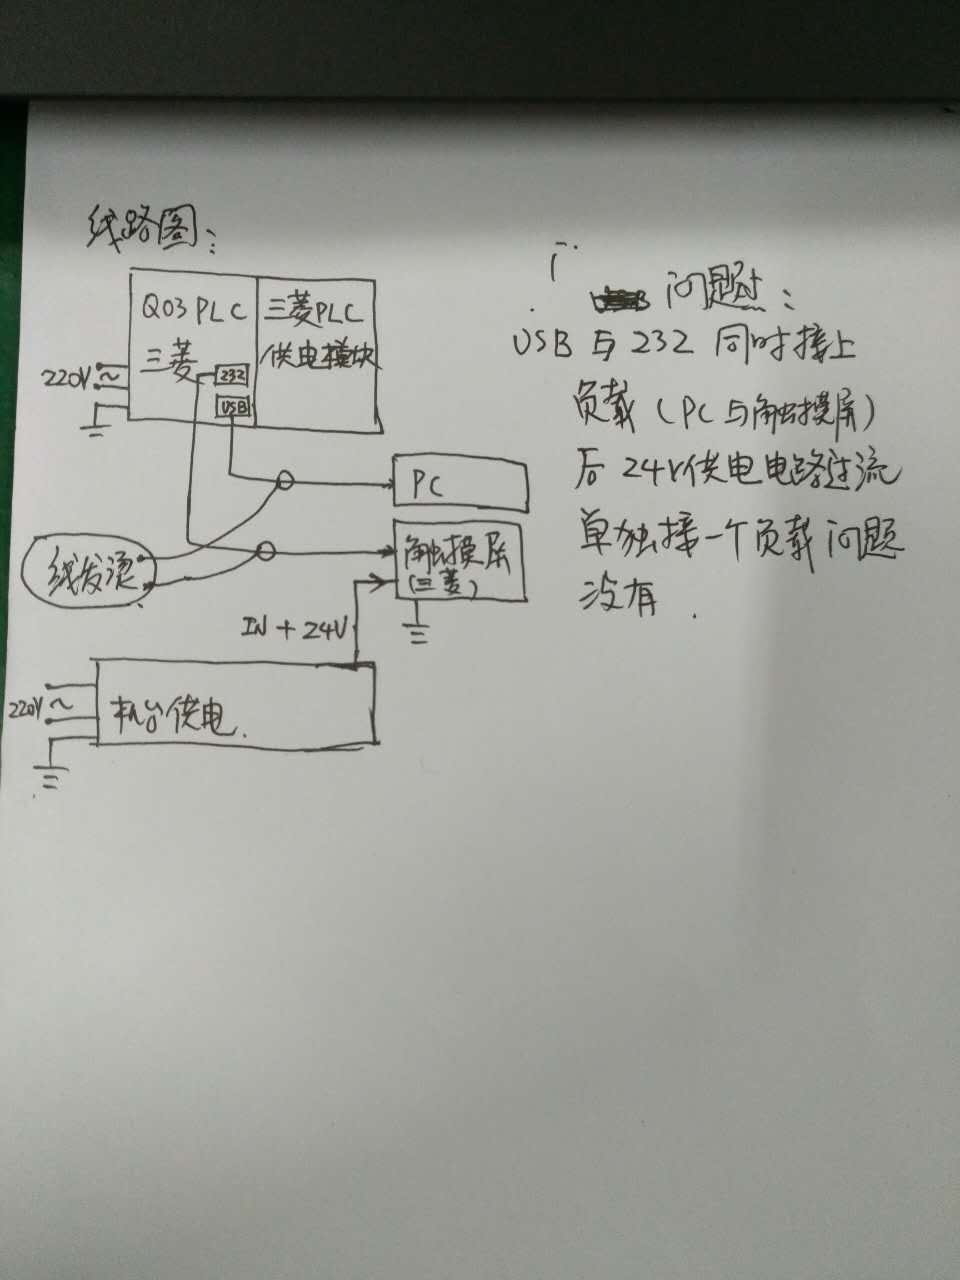 线路图：
Q03 PLC
三菱
三菱PLC
供电模块
232
USB
220V ~
PC
触摸屏
(三菱)
线发烫
IN + 24V
220V ~
机台供电.
问题：
USB 与 232 同时接上
负载（PC 与触摸屏）
后 24V供电电路过流
单独接一个负载问题
没有.